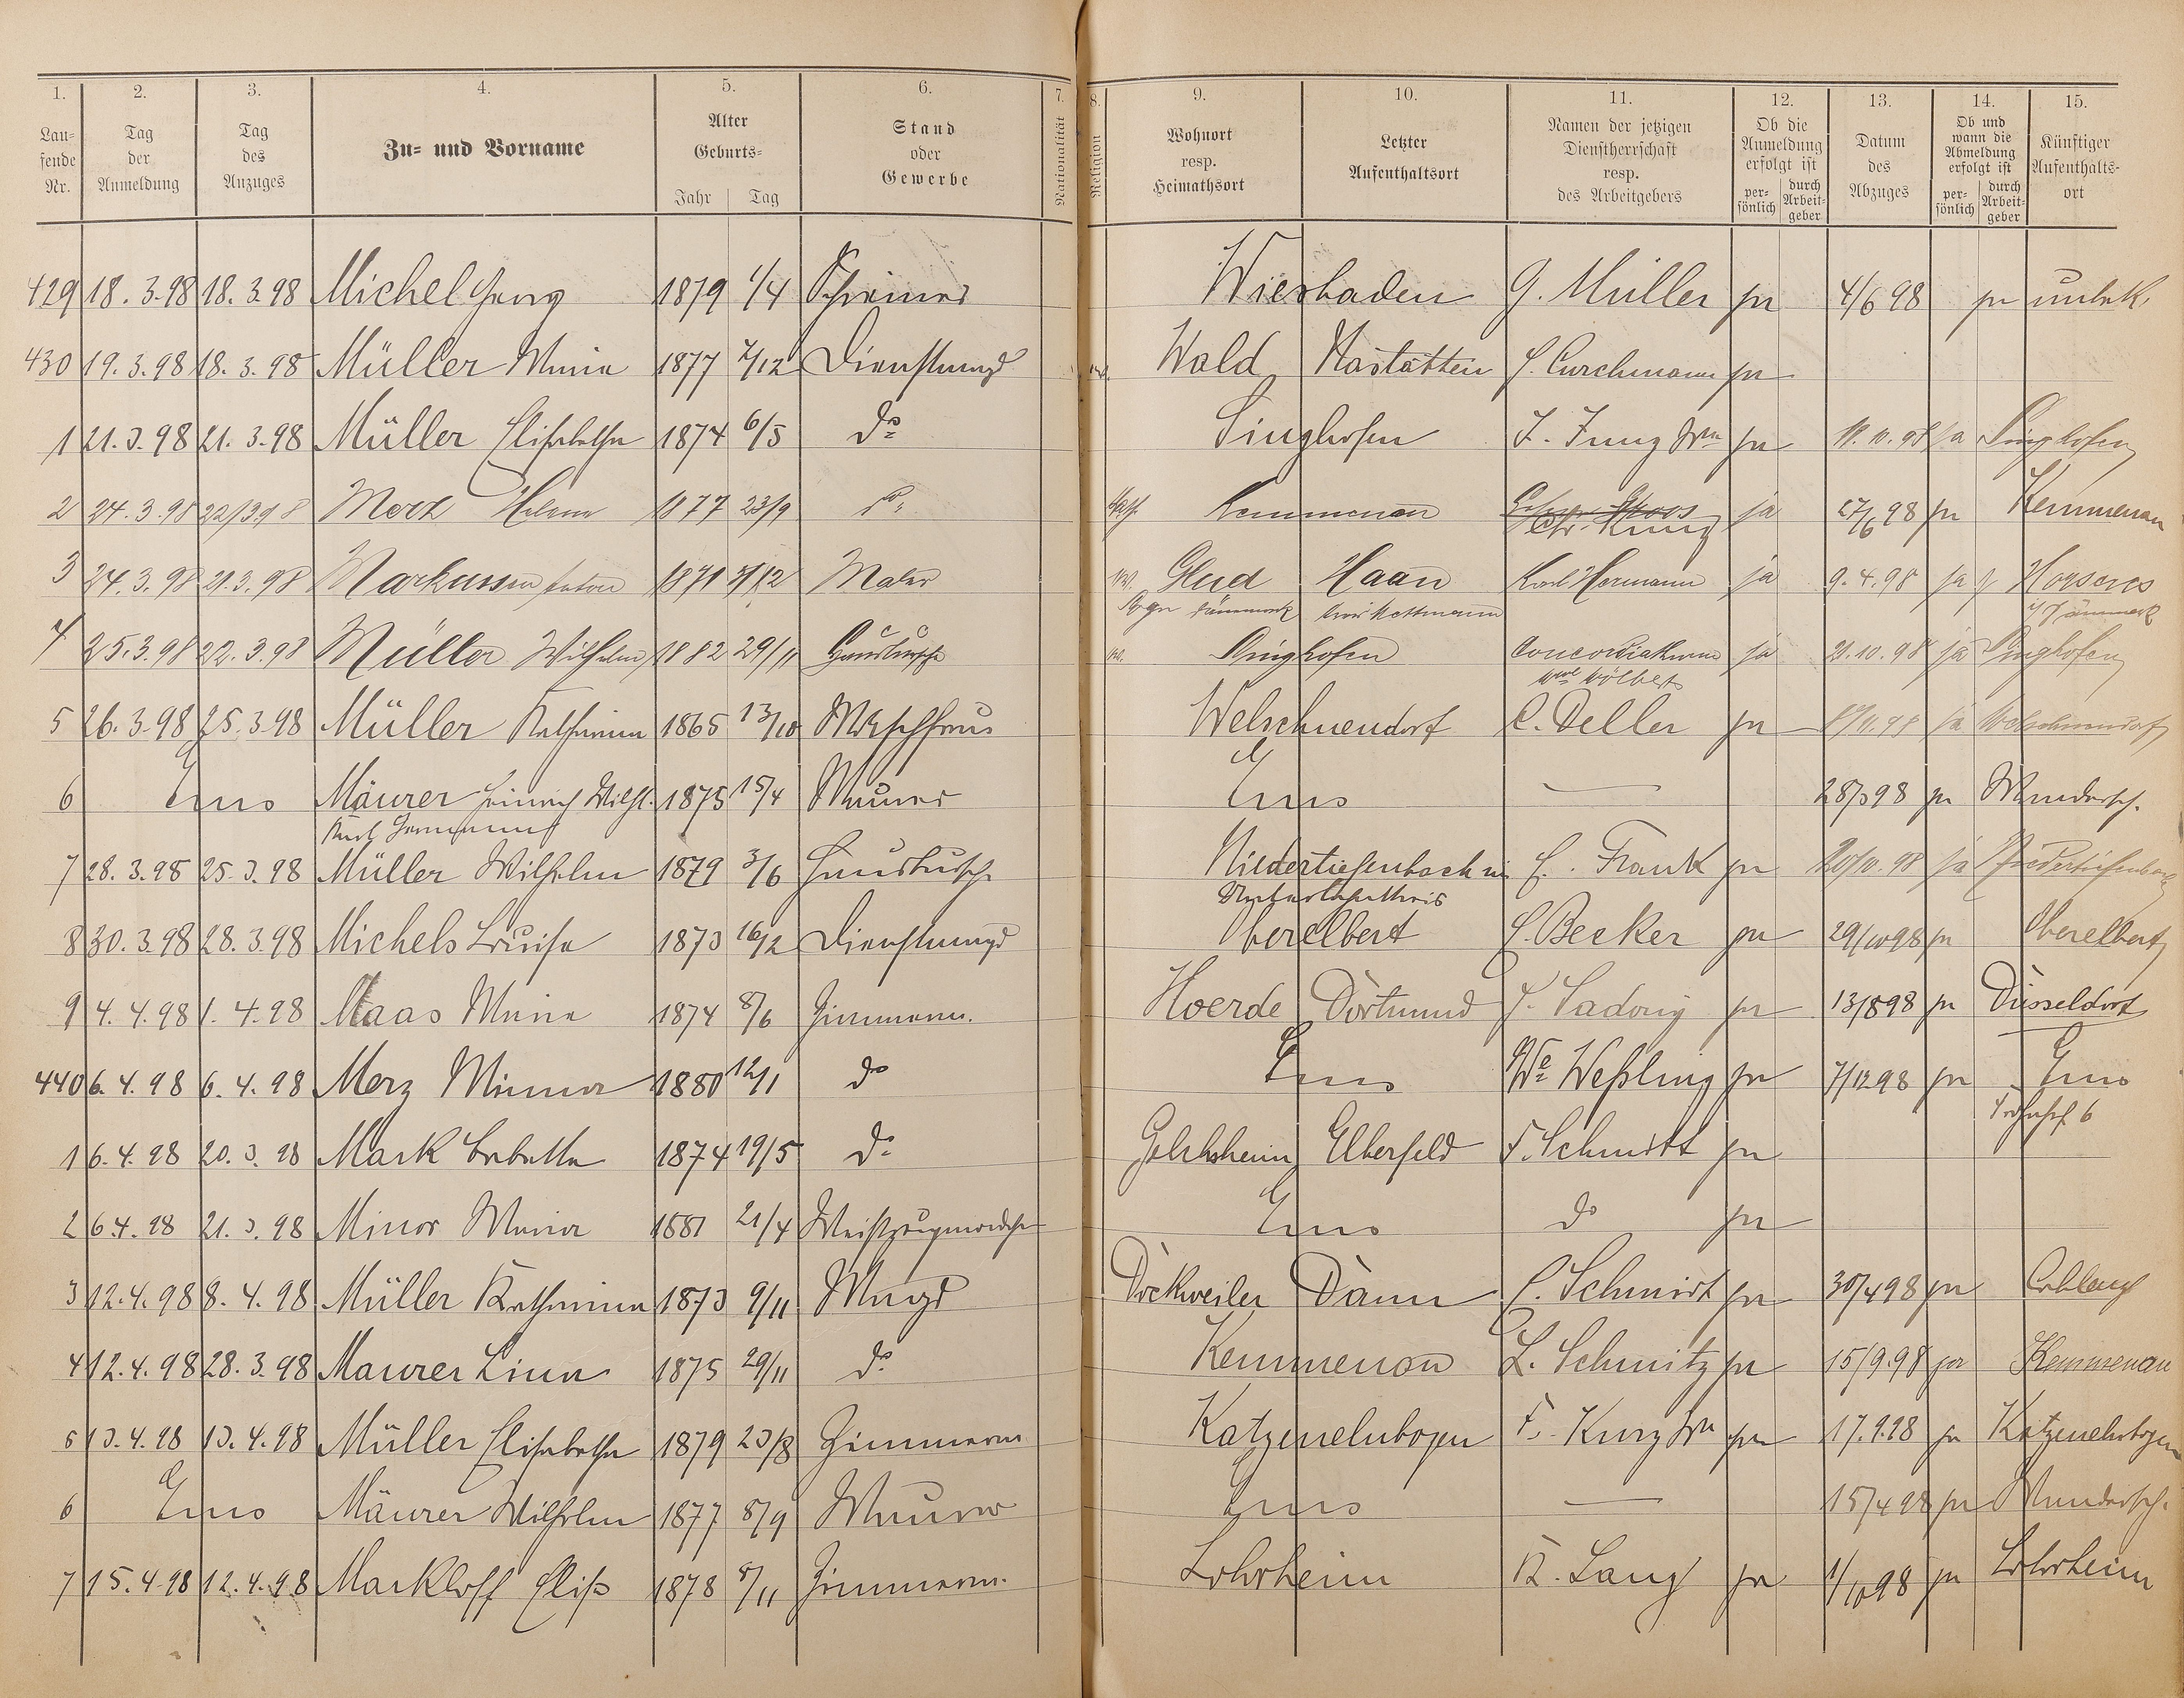 1. 2. 3. 4. 5. 6. 7. 8. 9. 10. 11. 12. 13. 14. 15.
Lau-
fende
Nr.
Tag
der
Anmeldung
Tag
des
Anzuges
Zu- und Vorname
Alter
Geburts-
Jahr Tag
Stand
oder
Gewerbe
Nationalität
Religion
Wohnort
resp.
Heimathsort
Letzter
Aufenthaltsort
Namen der jetzigen
Dienstherrschaft
resp.
des Arbeitgebers
Ob die
Anmeldung
erfolgt ist
per-
sönlich
durch
Arbeit-
geber
Datum
des
Abzuges
Ob und
wann die
Abmeldung
erfolgt ist
per-
sönlich
durch
Arbeit-
geber
Künftiger
Aufenthalts-
ort
429 18.3.98 18.3.98 Michel Georg 1879 1/4 Schreiner Wiesbaden G. Müller ja 4/6 98 ja unbek.
430 19.3.98 18.3.98 Müller Maria 1877 7/12 Dienstmagd Wald Nastätten Curchmann ja
1 21.3.98 21.3.98 Müller Elisabethe 1874 6/5 do Singhofen J. Jung Wwe ja 11.10.98 ja Singhofen
2 24.3.98 22/3.98 Merz Helene 1877 23/9 do Kath. Kemmenau ja 27/6 98 ja Kemmenau
3 24.3.98 21.3.98 Markussen Anton 1871 Maler ev. Glud Haan Karl Hermann ja 9.4.98 ja Horsens
bei Mettmann
4 25.3.98 22.3.98 Müller Wilhelm 1882 29/11 Hausbursche ev. Singhofen ja 21.10.98 ja Singhofen
5 26.3.98 25.3.98 Müller Katharina 1865 13/10 Waschfrau Welschneudorf C. Deller ja ja Welschneudorf
6 Ems Mäurer Heinrich Wilh. 1875 15/4 Maurer Ems — 28/3 98 ja Wandersch.
Karl Hermann
7 28.3.98 25.3.98 Müller Wilhelm 1879 3/6 Hausbursche Niedertiefenbach Frank ja 20/10.98 ja Niedertiefenbach
8 30.3.98 28.3.98 Michels Louise 1873 16/2 Dienstmagd Oberelbert Becker ja 29/10 98 ja Oberelbert
9 4.4.98 1.4.98 Maas Maria 1874 8/6 Zimmerm. Hoerde Dortmund Sadony ja 13/8 98 ja Düsseldorf
440 6.4.98 6.4.98 Merz Minna 1880 12/1 do Ems We Weßling ja 7/12 98 ja Ems
1 6.4.98 20.3.98 Mark Babette 1874 19/5 do Gelchsheim Elberfeld F. Schmitt ja
2 6.4.98 21.3.98 Minor Maria 1881 21/4 Weißzeugmädchen Ems do ja
3 12.4.98 8.4.98 Müller Katharina 1873 9/11 Magd Dockweiler Daun Schmidt ja 30/4 98 ja Coblenz
4 12.4.98 28.3.98 Maurer Lina 1875 29/11 do Kemmenau L. Schmitz ja 15/9.98 ja Kemmenau
5 13.4.98 13.4.98 Müller Elisabethe 1879 23/8 Zimmerm. Katzenelnbogen F. Kurz Wwe ja 17.9.98 ja Katzenelnbogen
6 Ems Mäurer Wilhelm 1877 8/9 Maurer Ems — 15/4 98 ja Wandersch.
7 15.4.98 12.4.98 Markloff Elise 1878 8/11 Zimmerm. Lohrheim K. Lang ja 1/10 98 ja Lohrheim